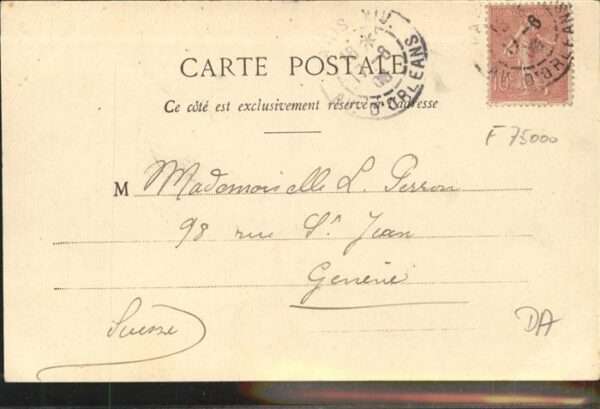 CARTE POSTALE
Ce côté est exclusivement réservé à l'adresse
F 75000
M Mademoiselle L. Perron
98 rue St Jean
Genève
Suisse
DA
PARIS XIII
18 * 17 -8
AV. D'ORLÉANS
17 -8
AV. D'ORLÉANS
10